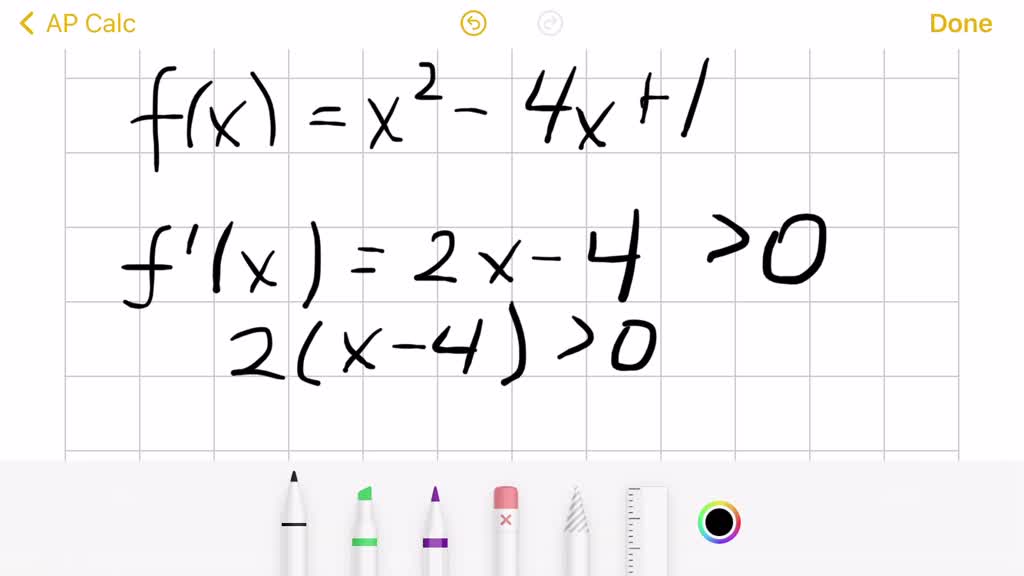 AP Calc Done
f(x) = x² - 4x + 1
f'(x) = 2x - 4 > 0
2(x - 4) > 0